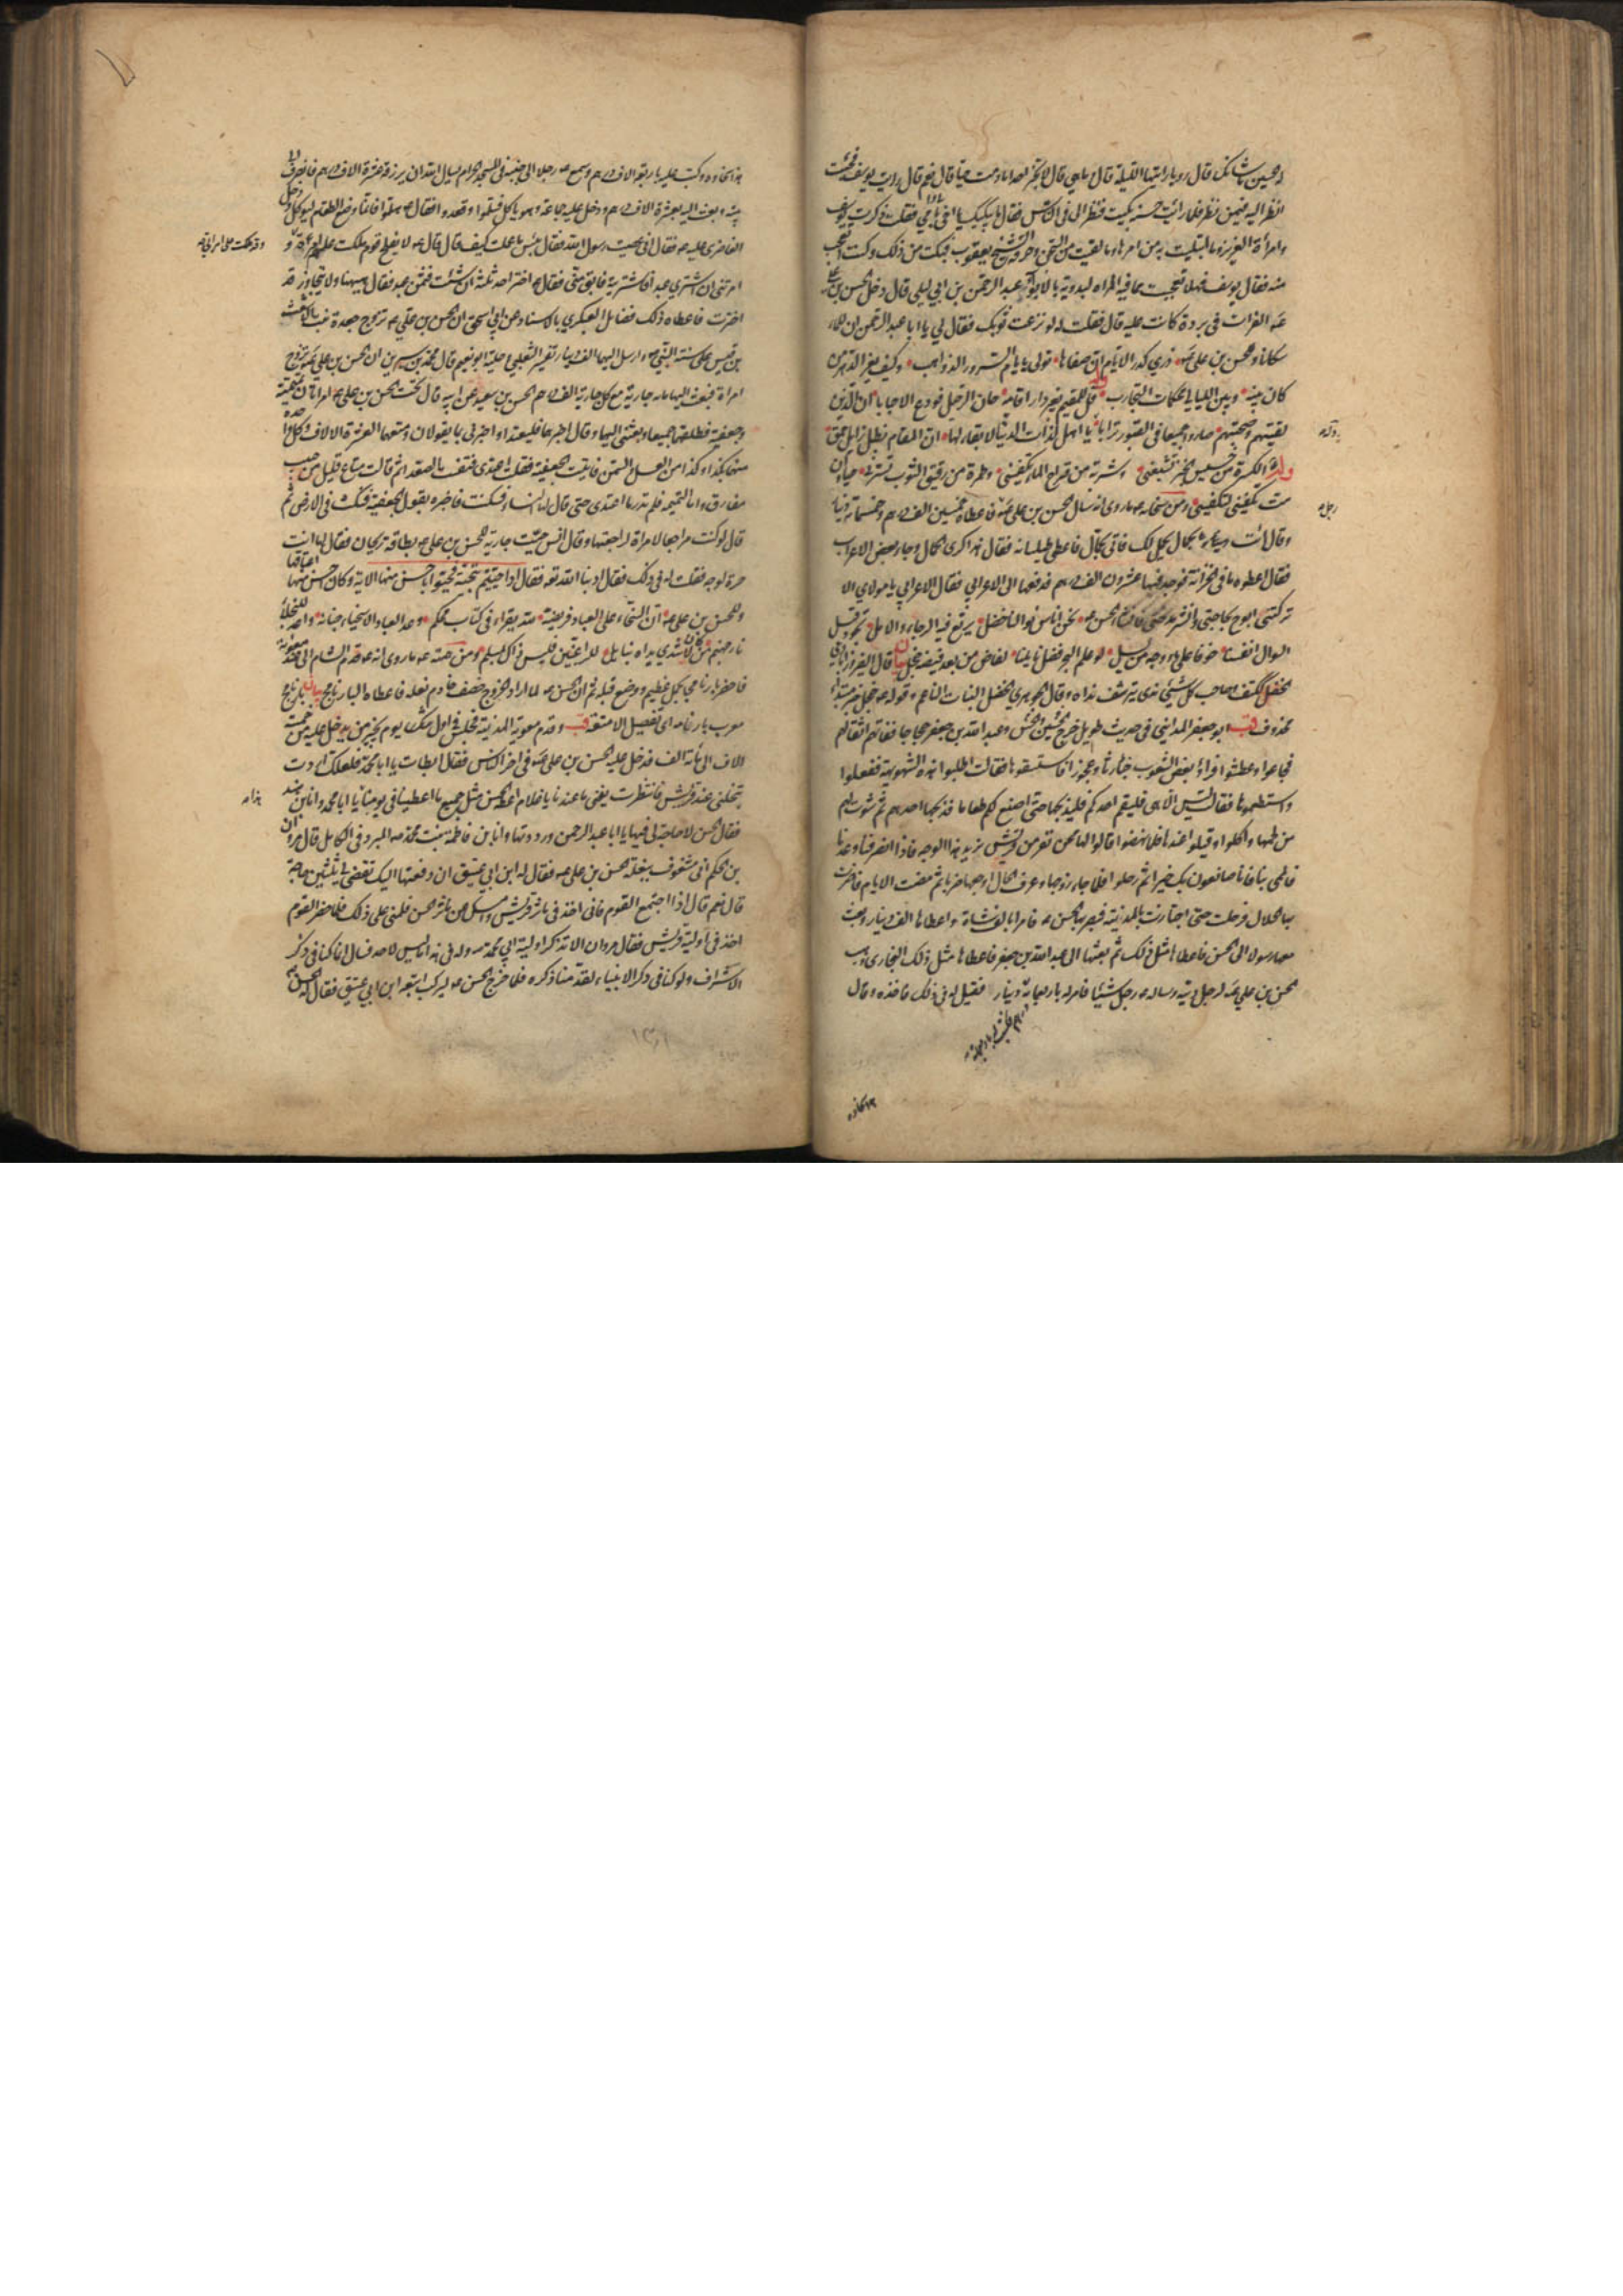 الحسين ما شانك قال رويا رايتها الليلة قال ما هي قال لا تخبر احدا ما دمت حيا قال نعم قال رايت يوسف فجئت
انظر اليه فيمن نظر فلما رايت حسنه بكيت فنظر الى في الناس فقال ما يبكيك يا اخي بابي وامي فقلت ذكرت يوسف
وامراة العزيز وما ابتليت به من امرها وما لقيت من السجن وحرقة الشيخ يعقوب فبكيت من ذلك وكنت اتعجب
منه فقال يوسف فهلا تعجبت مما فيه المراة البدوية بالابواء عبد الرحمن بن ابي ليلى قال دخل الحسن بن علي
الفرات في بردة كانت عليه قال فقلت له لو نزعت ثوبك فقال لي يا ابا عبد الرحمن ان للماء
سكانا وللحسن بن علي ذري كدر الايام ان صفاءها تولى بايام السرور الذواهب وكيف يغر الدهر من
كان بينه وبين الليالي محكمات التجارب وله قل للمقيم بغير دار اقامة حان الرحيل فودع الاحبابا ان الذين
لقيتهم وصحبتهم صاروا جميعا في القبور ترابا يا اهل لذات الدنيا لا بقاء لها ان المقام بظل زايل حمق
وله لكسرة من خسيس الخبز تشبعني وشربة من قراح الماء تكفيني وطمرة من رقيق الثوب تسترني حيا وان
مت تكفيني لتكفيني ومن سخائه ما روي انه سال الحسن بن علي فاعطاه خمسين الف درهم وخمسمائة دينار
وقال ائت بحمال يحمل لك فاتى بحمال فاعطى طيلسانه فقال هذا كرى الحمال وجاء بعض الاعراب
فقال اعطوه ما في الخزانة فوجد فيها عشرون الف درهم فدفعها الى الاعرابي فقال الاعرابي يا مولاي الا
تركتني ابوح بحاجتي وانشر مدحتي فانشا الحسن نحن اناس نوالنا خضل يرتع فيه الرجاء والامل تجود قبل
السوال انفسنا خوفا على ماء وجه من يسل لو علم البحر فضل نايلنا لفاض من بعد فيضه خجل بيان قال الفيروزابادي
الخضل ككتف وصاحب كل شيء ندى يترشف نداه وقال الجوهري الخضل النبات الناعم وقوله خجل خبر مبتداء
محذوف قب ابو جعفر المدايني في حديث طويل خرج الحسن والحسين وعبد الله بن جعفر حجاجا ففاتهم اثقالهم
فجاعوا وعطشوا فراوا في بعض الشعوب خباء رثا وعجوزا فاستسقوها فقالت اطلبوا هذه الشويهة ففعلوا
واستطعموها فقالت ليس الا هي فليقم احدكم فليذبحها حتى اصنع لكم طعاما فذبحها احدهم ثم شوت لهم
من لحمها واكلوا وقيلوا عندها فلما نهضوا قالوا لها نحن نفر من قريش نريد هذا الوجه فاذا انصرفنا وعدنا
فالمي بنا فانا صانعون بك خيرا ثم رحلوا فلما جاء زوجها وعرف الحال اوجعها ضربا ثم مضت الايام فاضرت
بها الحال فرحلت حتى اجتازت بالمدينة فبصر بها الحسن فامر لها بالف شاة واعطاها الف دينار وبعث
معها رسولا الى الحسين فاعطاها مثل ذلك ثم بعثها الى عبد الله بن جعفر فاعطاها مثل ذلك البخاري وهب
الحسن بن علي لرجل ديته وساله رجل شيئا فامر له باربعمائة دينار فقيل له في ذلك فاخذه وقال
هذا سخاؤه وكتب عليه باربعة الاف درهم وسمع رجلا الى جنبه في المسجد الحرام يسال الله ان يرزقه عشرة الاف درهم فانصرف الى
بيته وبعث اليه بعشرة الاف درهم ودخل عليه جماعة وهو ياكل فسلموا وقعدوا فقال هلموا فانما وضع الطعام ليوكل ودخل
الغاضري عليه فقال اني عصيت رسول الله فقال بئس ما عملت كيف قال قال لا يفلح قوم ملكت عليهم امراة
وقد ملكت على امراتي
امرتني ان اشتري عبدا فاشتريته فابق مني فقال اختر احد ثلثة ان شئت فثمن عبد فقال هيهنا ولا تجاوز قد
اخترت فاعطاه ذلك فضايل العكبري بالاسناد عن ابي اسحق ان الحسن بن علي تزوج جعدة بنت الاشعث
بن قيس على سنة النبي وارسل اليها الف دينار تفسير الثعلبي وحلية ابو نعيم قال محمد بن سيرين ان الحسن بن علي تزوج
امراة فبعث اليها مائة جارية مع كل جارية الف درهم الحسن بن سعيد عن ابيه قال كان تحت الحسن بن علي امراتان تميمية
وجعفية فطلقهما جميعا وبعثني اليهما وقال اخبرهما فليعتدا واخبرني بما يقولان ومتعهما العشرة الالاف وكل واحدة
منهما بكذا وكذا من العسل والسمن فاتيت الجعفية فقلت اعتدي فتنفست الصعداء ثم قالت متاع قليل من حبيب
مفارق واما التميمية فلم تدر ما اعتدي حتى قال لها النساء فسكتت فاخبرته بقول الجعفية فنكت في الارض ثم
قال لو كنت مراجعا لامراة لراجعتها وقال انس حيت جارية للحسن بن علي بطاقة ريحان فقال لها انت
حرة لوجه الله فقلت له في ذلك فقال ادبنا الله تعالى فقال اذا حييتم بتحية فحيوا باحسن منها الاية وكان احسن منها اعتاقها
وللحسن بن علي ان السخاء على العباد فريضة لله يقرا في كتاب محكم وعد العباد الاسخياء جنانه واعد للبخلاء
نار جهنم من كان لا تندي يداه بنايل للراغبين فليس ذاك بمسلم ومن همته ما روي انه قدم الشام الى عند معوية
فاحضر بارنامجا بحمل عظيم ووضع قبله ثم ان الحسن لما اراد الخروج خصف خادم نعله فاعطاه البارنامج بيان البارنامج
معرب بارنامه اي تفصيل الامتعة قب وقدم معوية المدينة فجلس في اول يوم يجيز من يدخل عليه من خمسة
الاف الى مائة الف فدخل عليه الحسن بن علي في اخر الناس فقال ابطات يا ابا محمد فلعلك اردت
تبخلني عند قريش فانتظرت يفنى ما عندنا يا غلام اعط الحسن مثل جميع ما اعطينا في يومنا هذا يا ابا محمد وانا ابن هند
فقال الحسن لا حاجة لي فيها يا ابا عبد الرحمن ورددتها وانا ابن فاطمة بنت محمد المبرد في الكامل قال مروان
بن الحكم اني مشغوف ببغلة الحسن بن علي فقال له ابن ابي عتيق ان دفعتها اليك تقضي لي ثلثين حاجة
قال نعم قال اذا اجتمع القوم فاني اخذ في ماثر قريش وامسك عن ماثر الحسن فلمني على ذلك فلما حضر القوم
اخذ في اولية قريش فقال مروان الا تذكر اولية ابي محمد وله في هذا ما ليس لاحد قال انما كنا في ذكر
الاشراف ولو كنا في ذكر الانبياء لقدمنا ذكره فلما خرج الحسن ليركب اتبعه ابن ابي عتيق فقال له الحسن